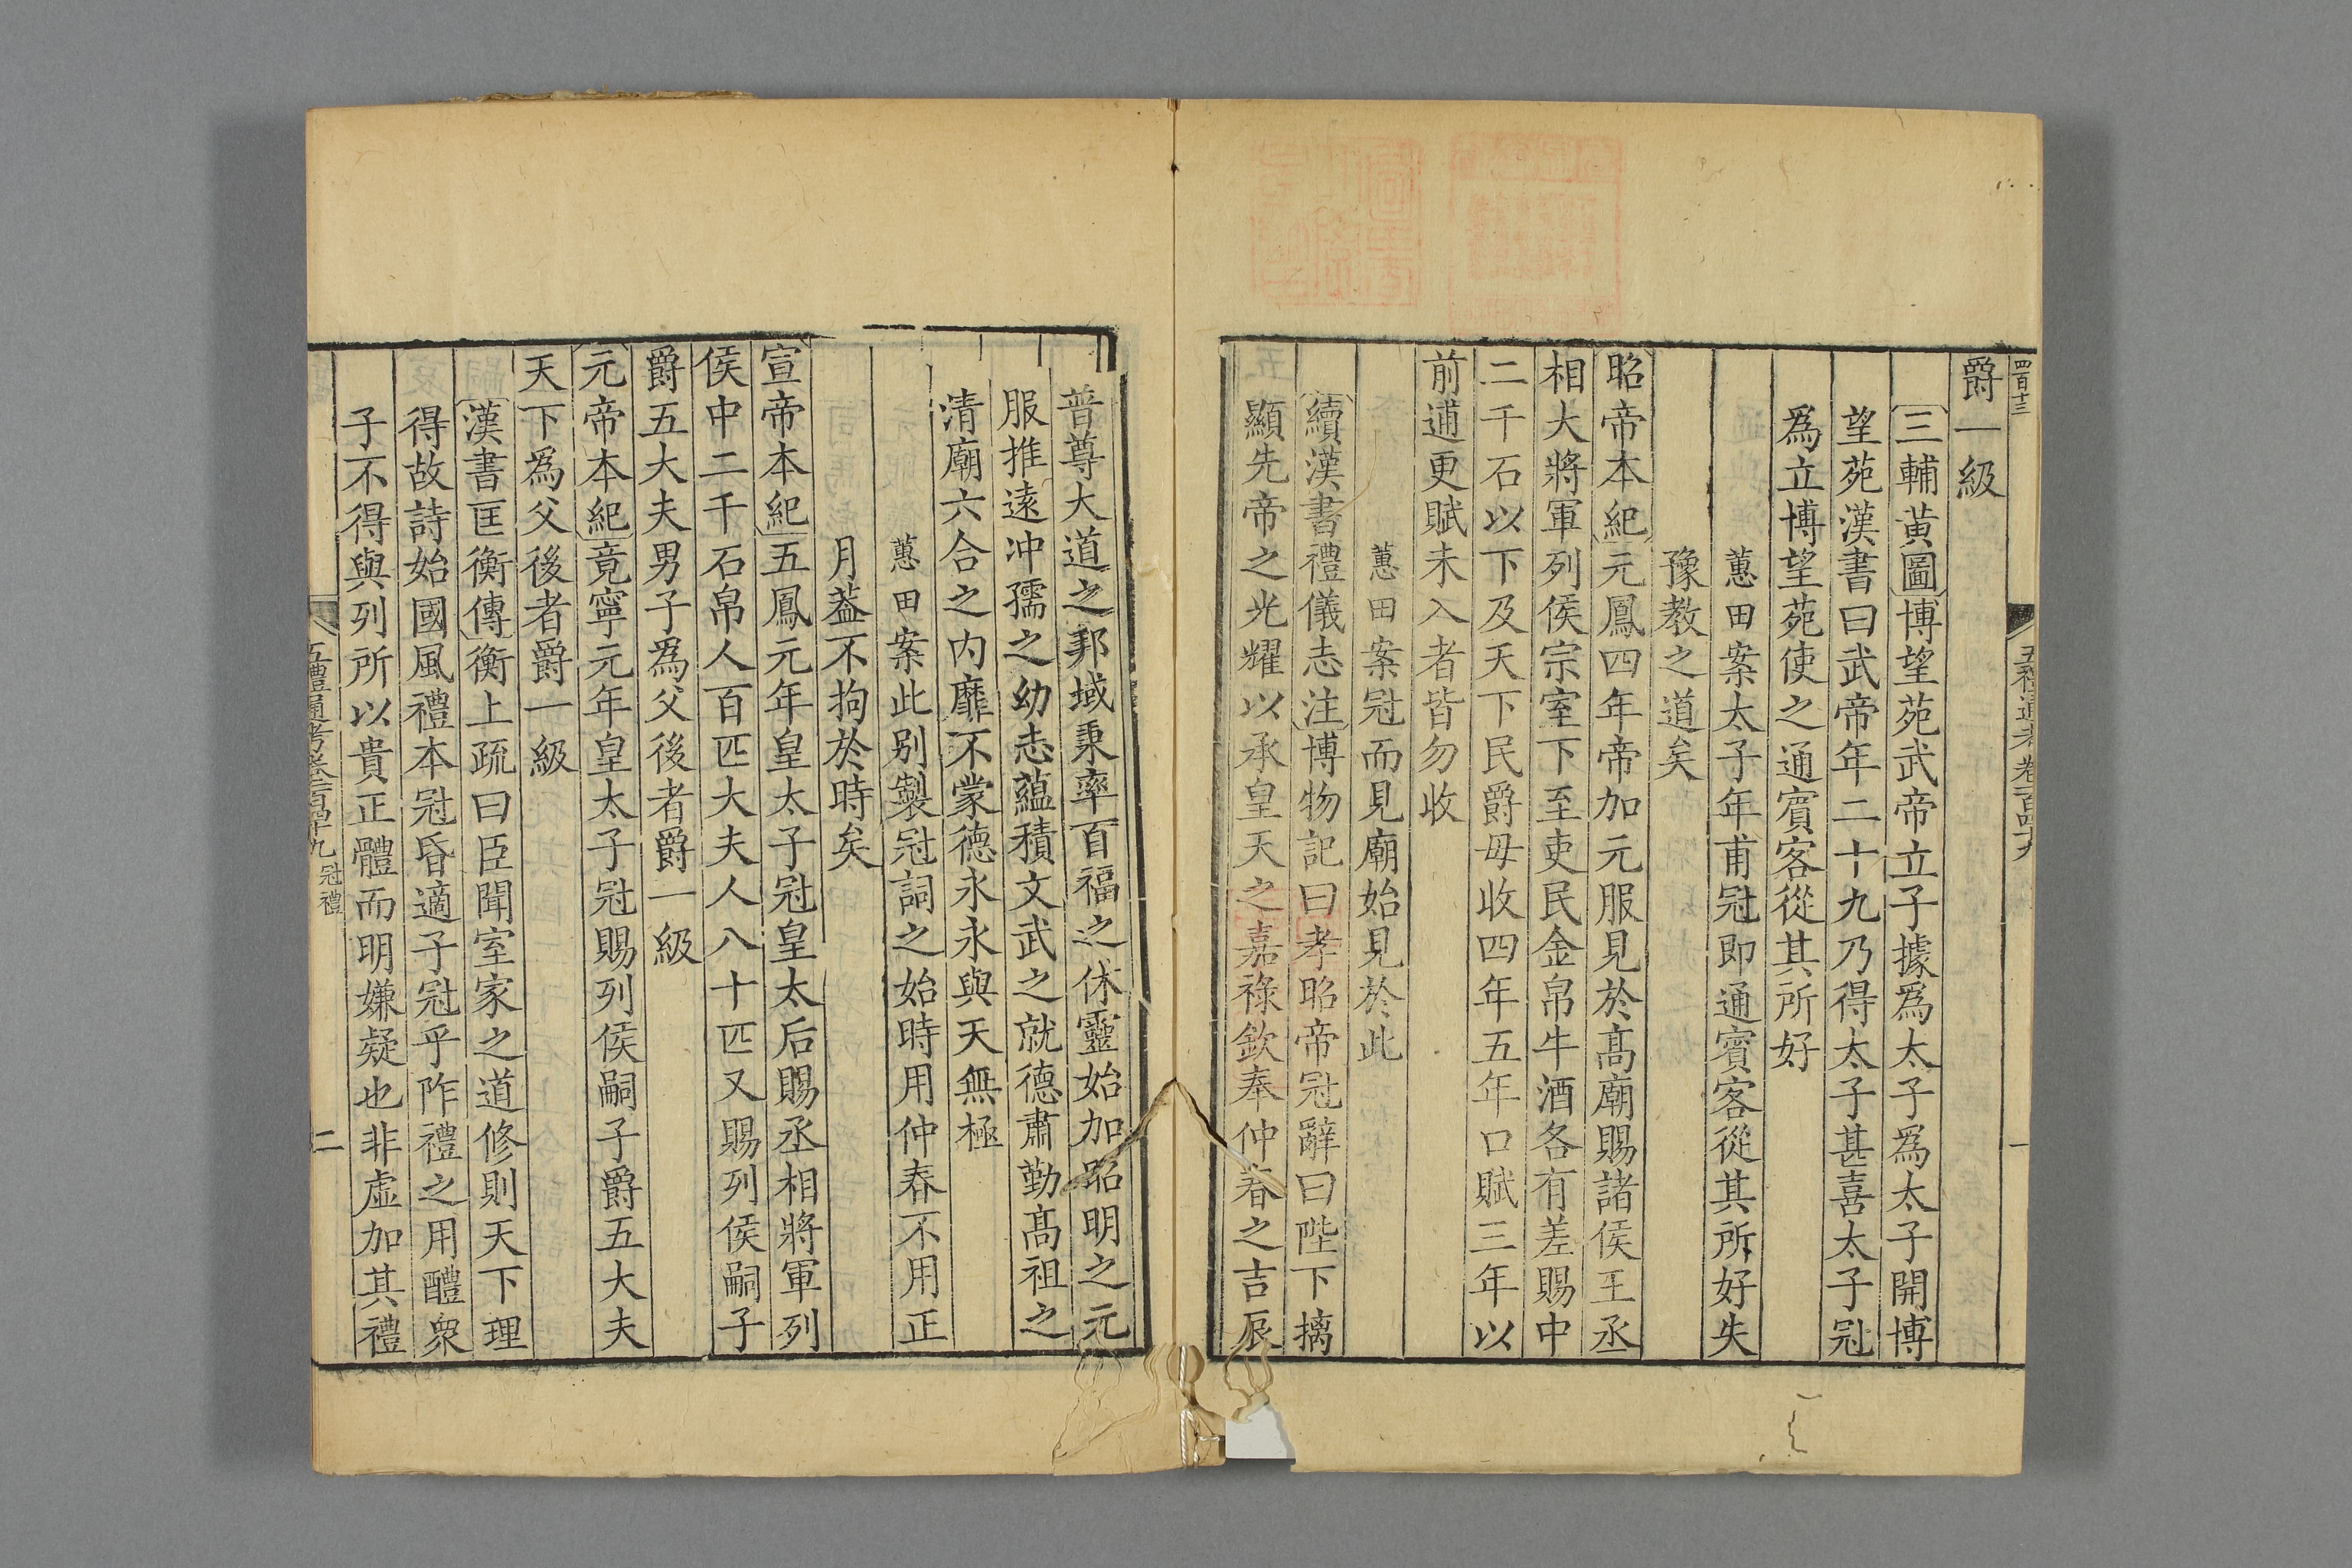 四百十三
五禮通考卷一百四十九
一
爵一級
三輔黃圖博望苑武帝立子據爲太子爲太子開博
望苑漢書曰武帝年二十九乃得太子甚喜太子冠
爲立博望苑使之通賓客從其所好
蕙田案太子年甫冠即通賓客從其所好失
豫教之道矣
昭帝本紀元鳳四年帝加元服見於高廟賜諸侯王丞
相大將軍列侯宗室下至吏民金帛牛酒各有差賜中
二千石以下及天下民爵毋收四年五年口賦三年以
前逋更賦未入者皆勿收
蕙田案冠而見廟始見於此
續漢書禮儀志注博物記曰孝昭帝冠辭曰陛下摛
顯先帝之光耀以承皇天之嘉祿欽奉仲春之吉辰
普尊大道之郪域秉率百福之休靈始加昭明之元
服推遠冲孺之幼志蘊積文武之就德肅勤高祖之
清廟六合之内靡不蒙德永永與天無極
蕙田案此别製冠詞之始時用仲春不用正
月葢不拘於時矣
宣帝本紀五鳳元年皇太子冠皇太后賜丞相將軍列
侯中二千石帛人百匹大夫人八十匹又賜列侯嗣子
爵五大夫男子爲父後者爵一級
元帝本紀竟寧元年皇太子冠賜列侯嗣子爵五大夫
天下爲父後者爵一級
漢書匡衡傳衡上疏曰臣聞室家之道修則天下理
得故詩始國風禮本冠昏適子冠乎阼禮之用醴衆
子不得與列所以貴正體而明嫌疑也非虛加其禮
五禮通考卷一百四十九 冠禮
二